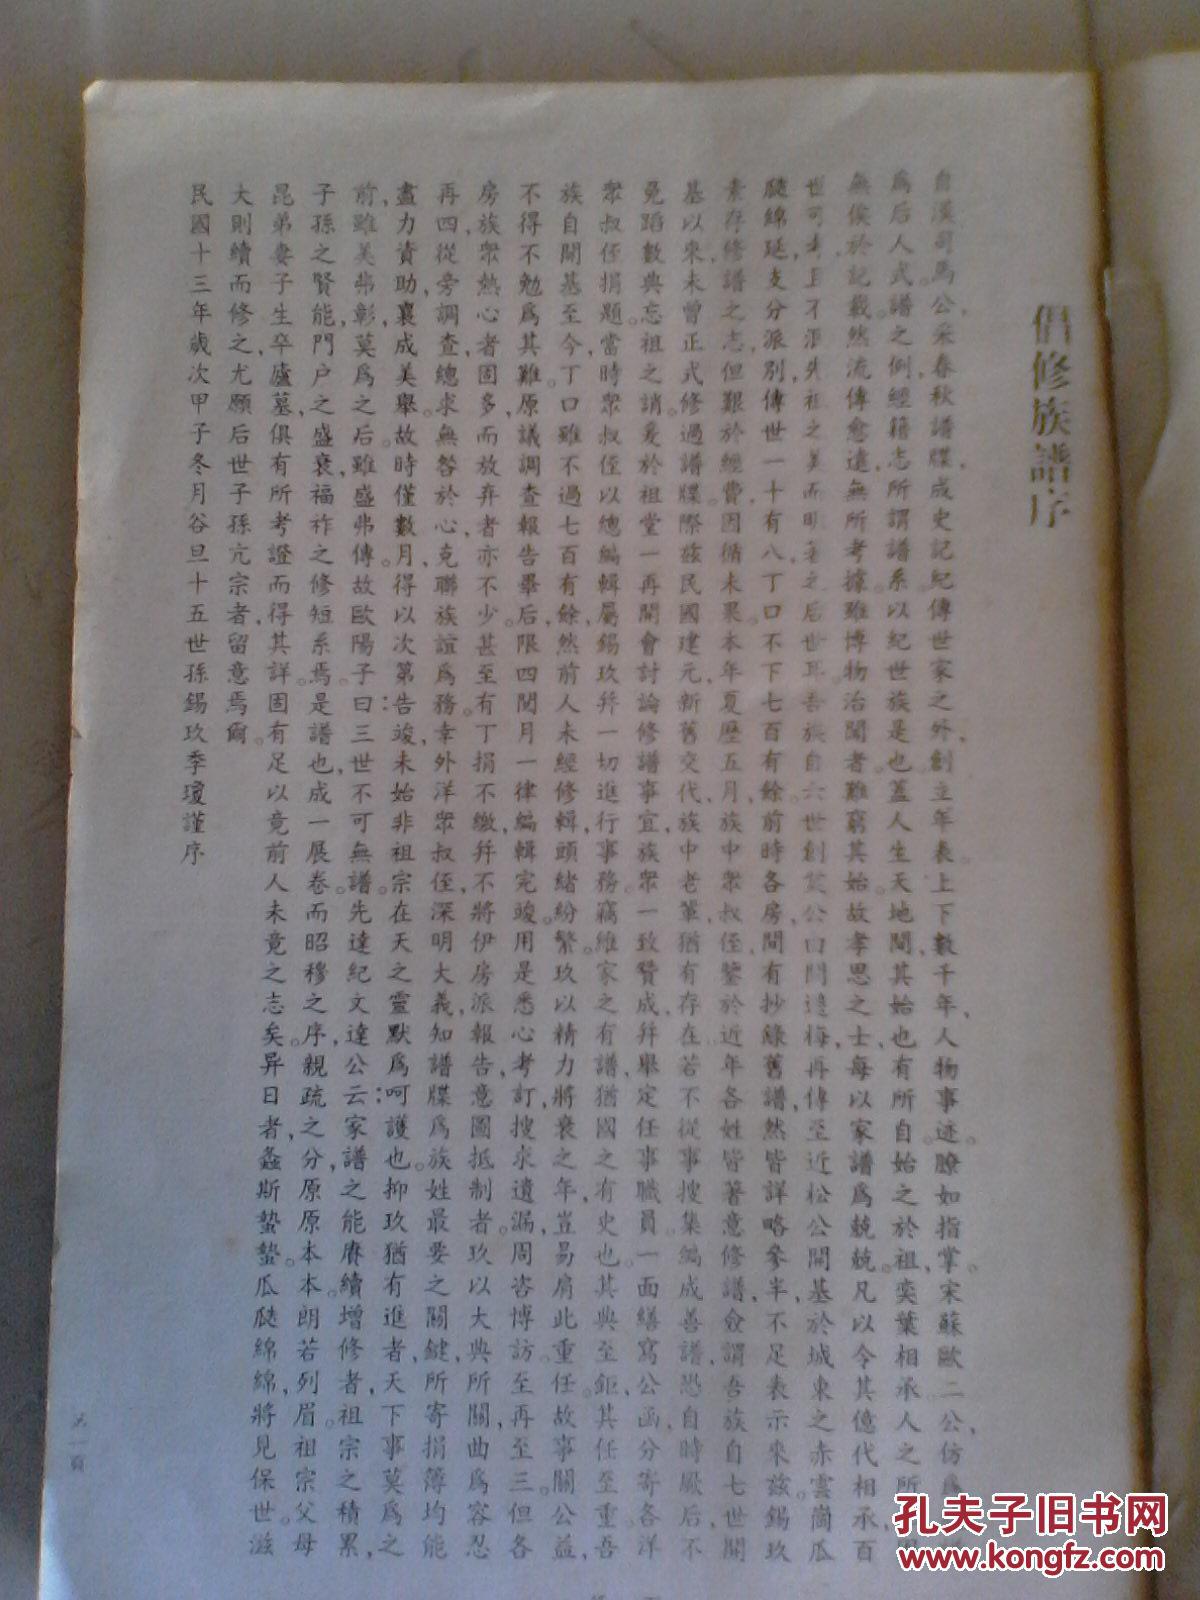 倡修族譜序
自漢司馬公、采春秋譜牒、成史記紀傳世家之外、創立年表。上下數千年、人物事迹。瞭如指掌。宋蘇歐二公、仿
爲后人式。譜之例、經籍志、所謂譜系。以紀世族是也。蓋人生天地間、其始也、有所自始之於祖、奕葉相承、人之所
無俟於記載。然流傳愈遠、無所考據。雖博物治聞者、難窮其始。故孝思之士、每以家譜爲兢兢。凡以令其億代相承、百
世可考、之美而之后世耳。吾族自六世創公再傳至近松公開基於城東之赤雲崗、瓜
瓞綿延、支分派別、傳世一十有八、丁口不下七百有餘。前時各房、間有抄錄舊譜、然皆詳略參半、不足表示來茲。錫玖
素存修譜之志、但艱於經費、因循未果。本年夏歷五月、族中衆叔侄、鑒於近年各姓皆著意修譜、僉謂吾族自七世開
基以來、未曾正式修過譜牒。際茲民國建元、新舊交代、族中老輩、猶有存在、若不從事搜集、編成善譜、恐自時厥后、不
免蹈數典忘祖之誚。爰於祖堂一再開會討論修譜事宜、族衆一致贊成、幷舉定任事職員。一面繕寫公函、分寄各洋
衆叔侄捐題。當時衆叔侄以總編輯屬錫玖、幷一切進行事務。竊維家之有譜、猶國之有史也。其典至鉅、其任至重。吾
族自開基至今、丁口雖不過七百有餘、然前人未經修輯、頭緒紛繁。玖以精力將衰之年、豈易肩此重任。故事關公益、
不得不勉爲其難。原議調查報告畢后、限四閱月一律編輯完竣。用是悉心考訂、搜求遺漏、周咨博訪。至再至三。但各
房族衆熱心者固多、而放弃者亦不少。甚至有丁捐不繳、幷不將伊房派報告、意圖抵制者。玖以大典所關、曲爲容忍
再四、從旁調查、總求無咎於心、克聯族誼爲務。幸外洋衆叔侄、深明大義、知譜牒爲族姓最要之關鍵、所寄捐簿、均能
盡力資助、襄成美舉。故時僅數月、得以次第告竣、未始非祖宗在天之靈、默爲呵護也。抑玖猶有進者、天下事莫爲之
前、雖美弗彰、莫爲之后、雖盛弗傳。故歐陽子曰：三世不可無譜。先達紀文達公云：家譜之能賡續增修者、祖宗之積累、
子孫之賢能、門户之盛衰、福祚之修短系焉。是譜也、成一展卷。而昭穆之序、親疏之分、原原本本。朗若列眉。祖宗父母
昆弟妻子生卒廬墓、俱有所考證而得其詳。固有足以竟前人未竟之志矣。异日者、螽斯蟄蟄。瓜瓞綿綿、將見保世。滋
大則續而修之、尤願后世子孫亢宗者、留意焉爾。
民國十三年歲次甲子冬月谷旦十五世孫錫玖季瓊謹序
一頁
孔夫子旧书网
www.kongfz.com